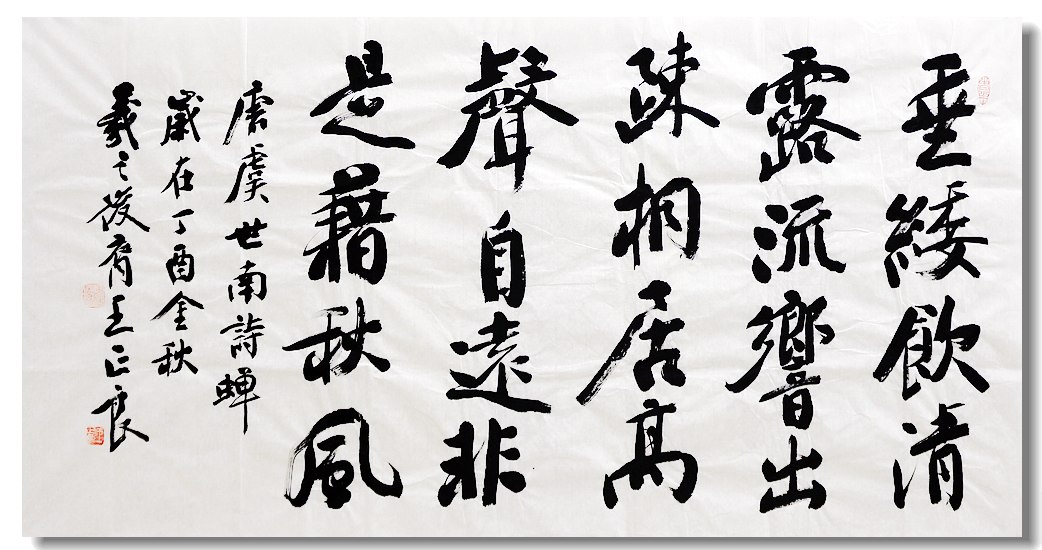 垂緌飲清
露流響出
疎桐居高
聲自遠非
是藉秋風
唐虞世南詩蝉
歲在丁酉金秋
羲之後裔王正良